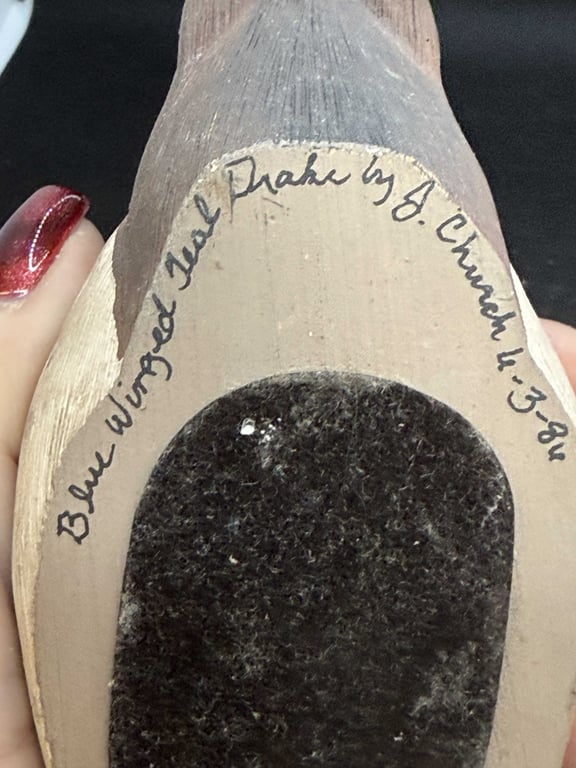 Blue Winged Teal Drake by J. Church 4-3-84